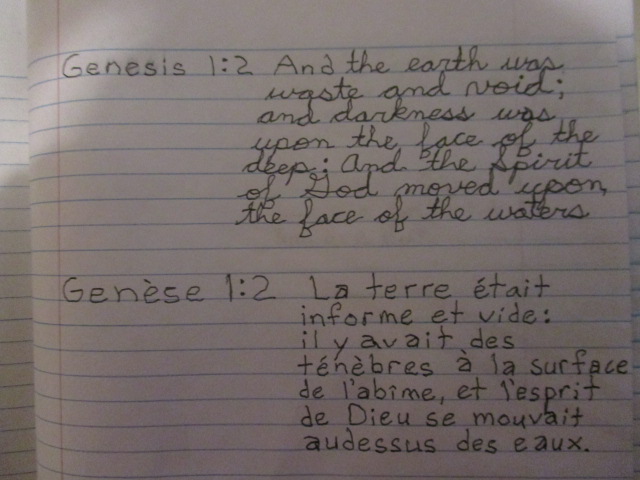 Genesis 1:2 And the earth was
waste and void;
and darkness was
upon the face of the
deep: And the Spirit
of God moved upon
the face of the waters
Genèse 1:2 La terre était
informe et vide:
il y avait des
ténèbres à la surface
de l'abîme, et l'esprit
de Dieu se mouvait
audessus des eaux.